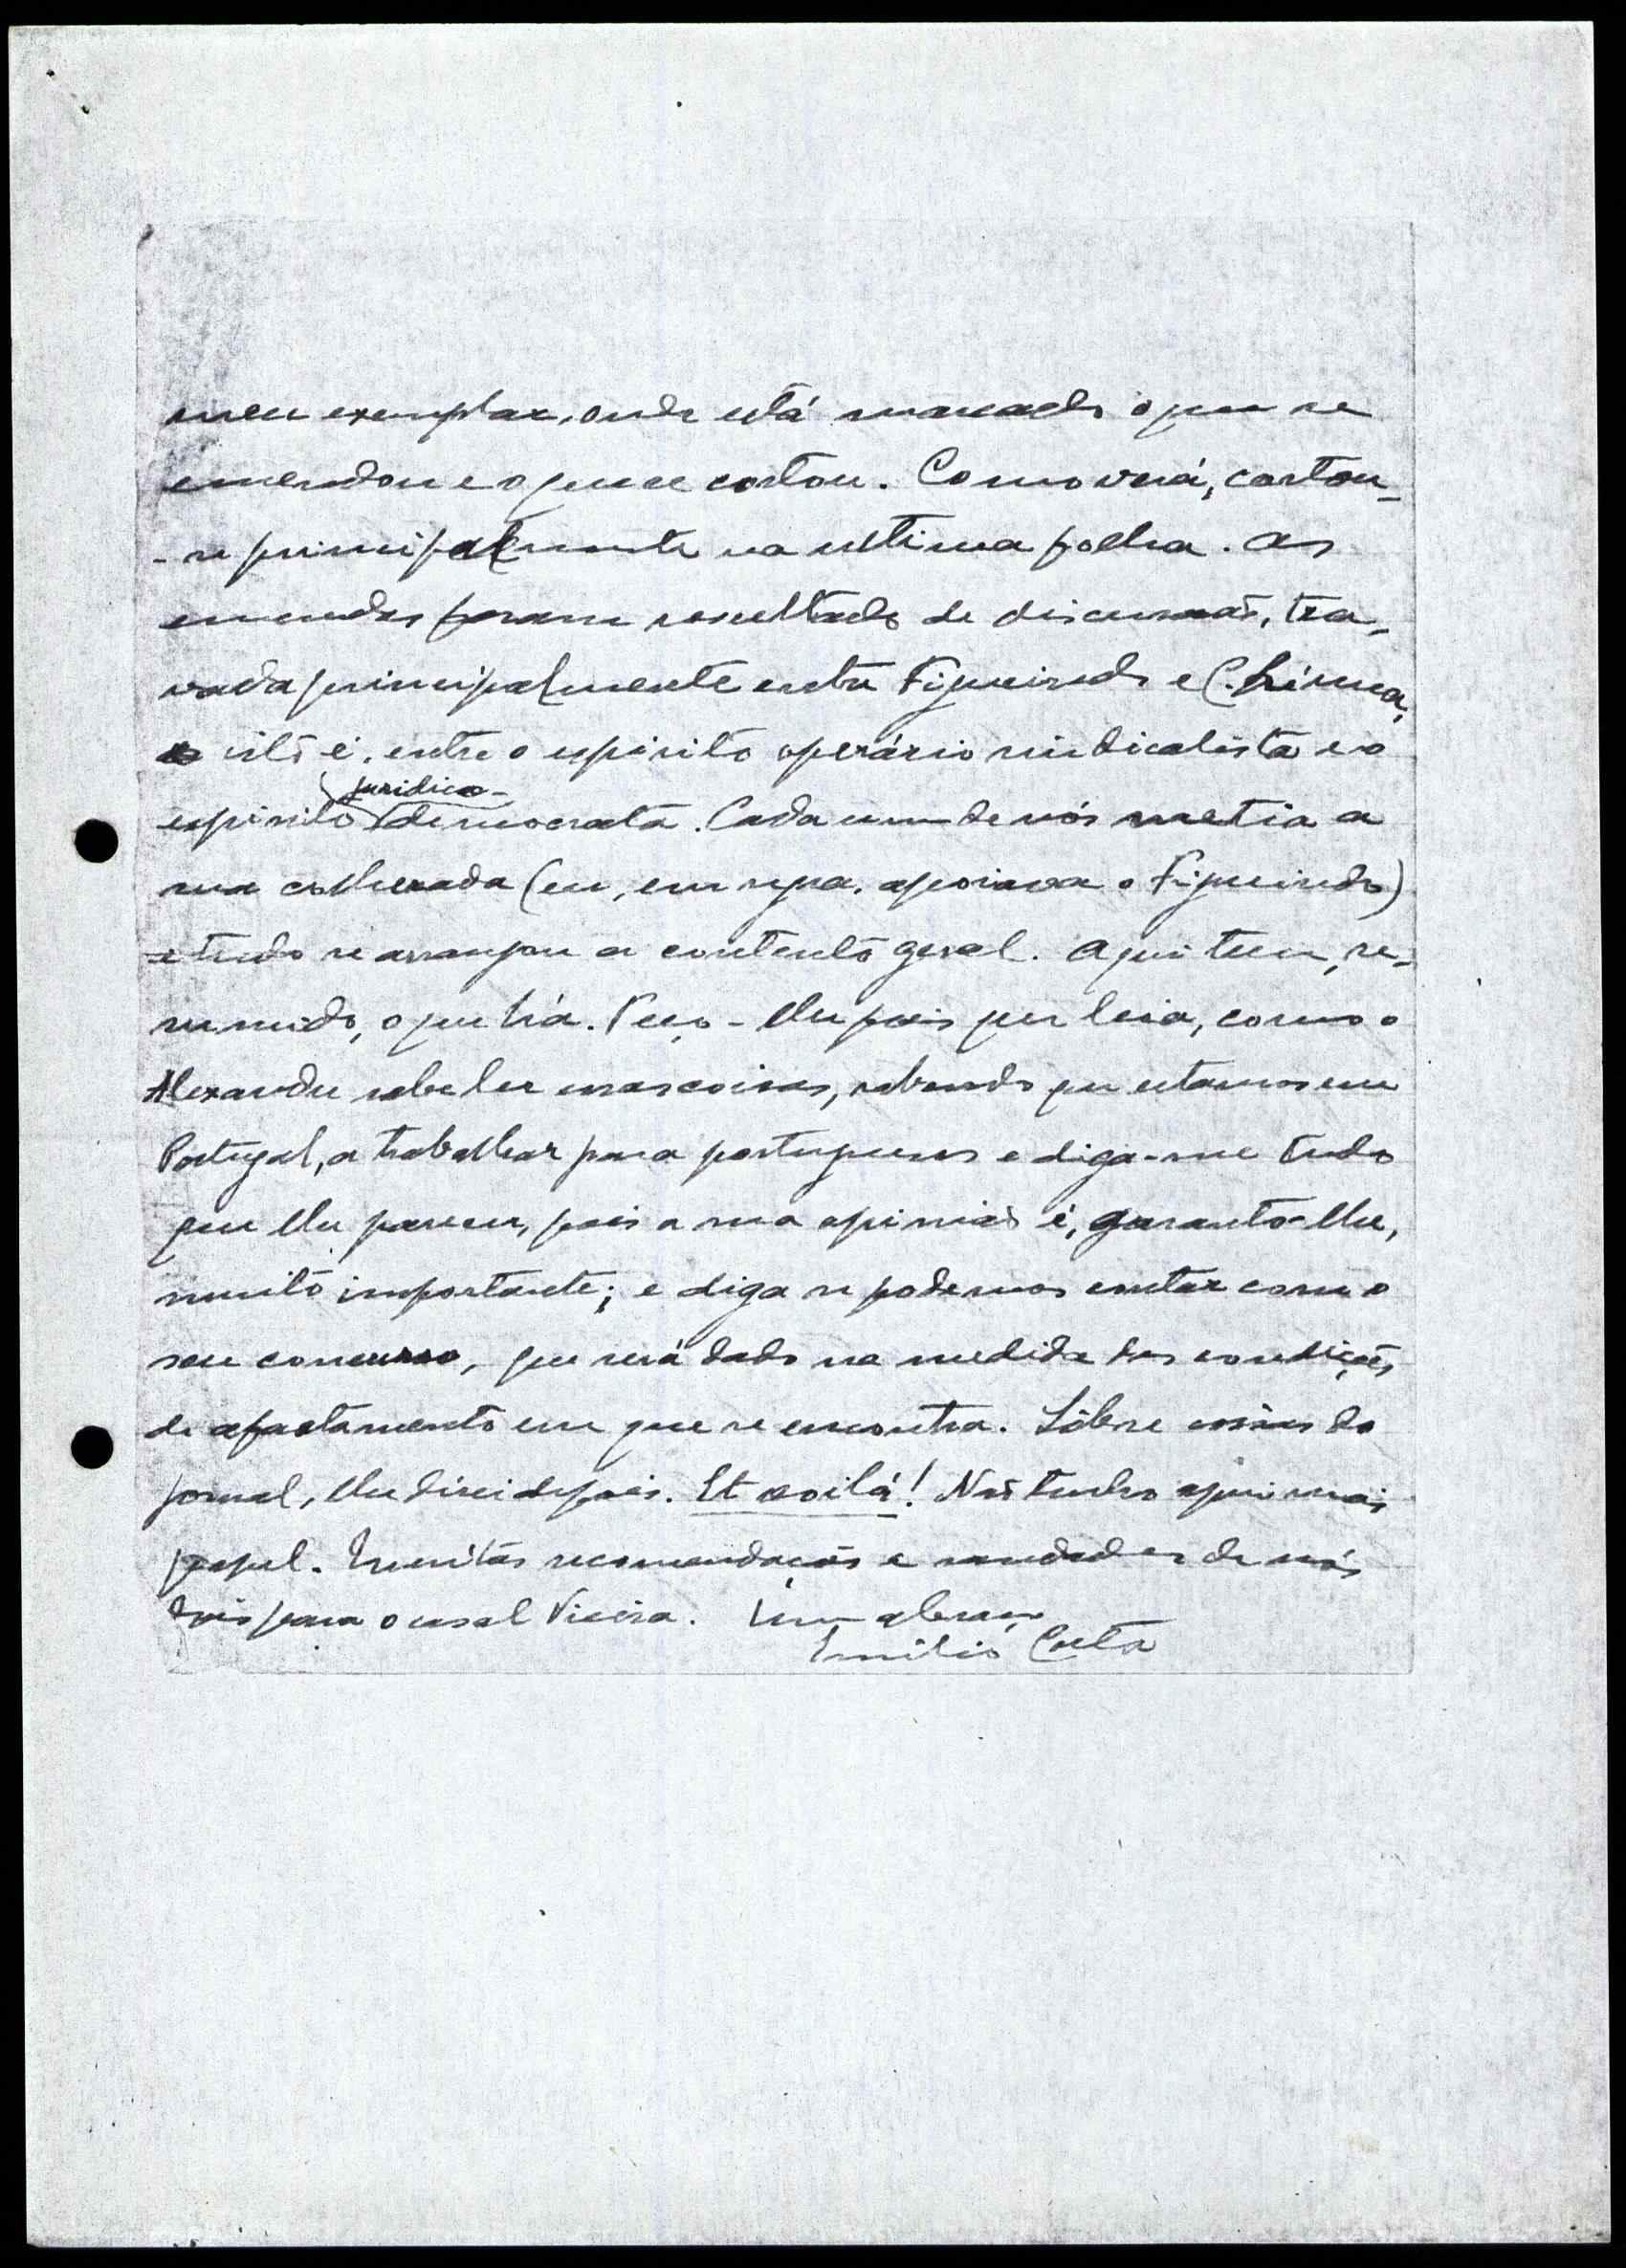 meu exemplar, onde está marcado o que se
emendou e o que se cortou. Como verá, cortou-
-se principalmente na ultima folha. As
emendas foram resultado de discussão, tra-
vada principalmente entre Figueiredo e C. Lima,
isto é, entre o espirito operário sindicalista e o
espirito juridico-democrata. Cada um de nós metia a
sua colherada (eu, em regra, apoiava o Figueiredo)
e tudo se arranjou a contento geral. Aqui tem, re-
sumido, o que há. Peço-lhe pois que leia, como o
Alexandre sabe ler essas coisas, sabendo que estamos em
Portugal, a trabalhar para portugueses e diga-me tudo
que lhe parecer, pois a sua opinião é, garanto-lhe,
muito importante; e diga se podemos contar com o
seu concurso, que será dado na medida das condições
de afastamento em que se encontra. Sôbre coisas do
jornal, lhe direi depois. Et voilá! Não tenho aqui mais
papel. Muitas recomendações e saudades de nós
dois para o casal Vieira. Um abraço
Emilio Costa